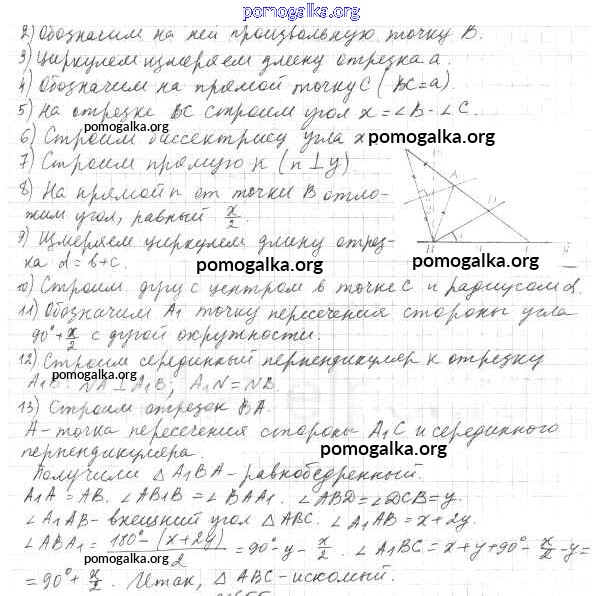 pomogalka.org
2) Обозначим на ней произвольную точку B.
3) Циркулем измеряем длину отрезка a.
4) Обозначим на прямой точку C (BC=a).
5) На отрезке BC строим угол x = ∠B - ∠C.
pomogalka.org
6) Строим биссектрису угла x
pomogalka.org
7) Строим прямую n (n ⊥ y).
8) На прямой n от точки B отло-
жим угол, равный x/2.
9) Измеряем циркулем длину отрез-
ка d = b+c.
pomogalka.org
pomogalka.org
10) Строим дугу с центром в точке C и радиусом d.
11) Обозначим A₁ точку пересечения стороны угла
90°+x/2 с дугой окружности.
12) Строим серединный перпендикуляр к отрезку
pomogalka.org
A₁B. NA ⊥ A₁B; A₁N = NB.
13) Строим отрезок BA.
A - точка пересечения стороны A₁C и серединного
pomogalka.org
перпендикуляра.
Получили △ A₁BA - равнобедренный.
A₁A = AB. ∠AB₁B = ∠BAA₁. ∠ABD = ∠DCB = y.
∠A₁AB - внешний угол △ ABC. ∠A₁AB = x+2y.
∠ABA₁ = 180° - (x+2y) / 2 = 90° - y - x/2. ∠A₁BC = x+y+90° - x/2 - y =
= 90° + x/2. Итак, △ ABC - искомый.